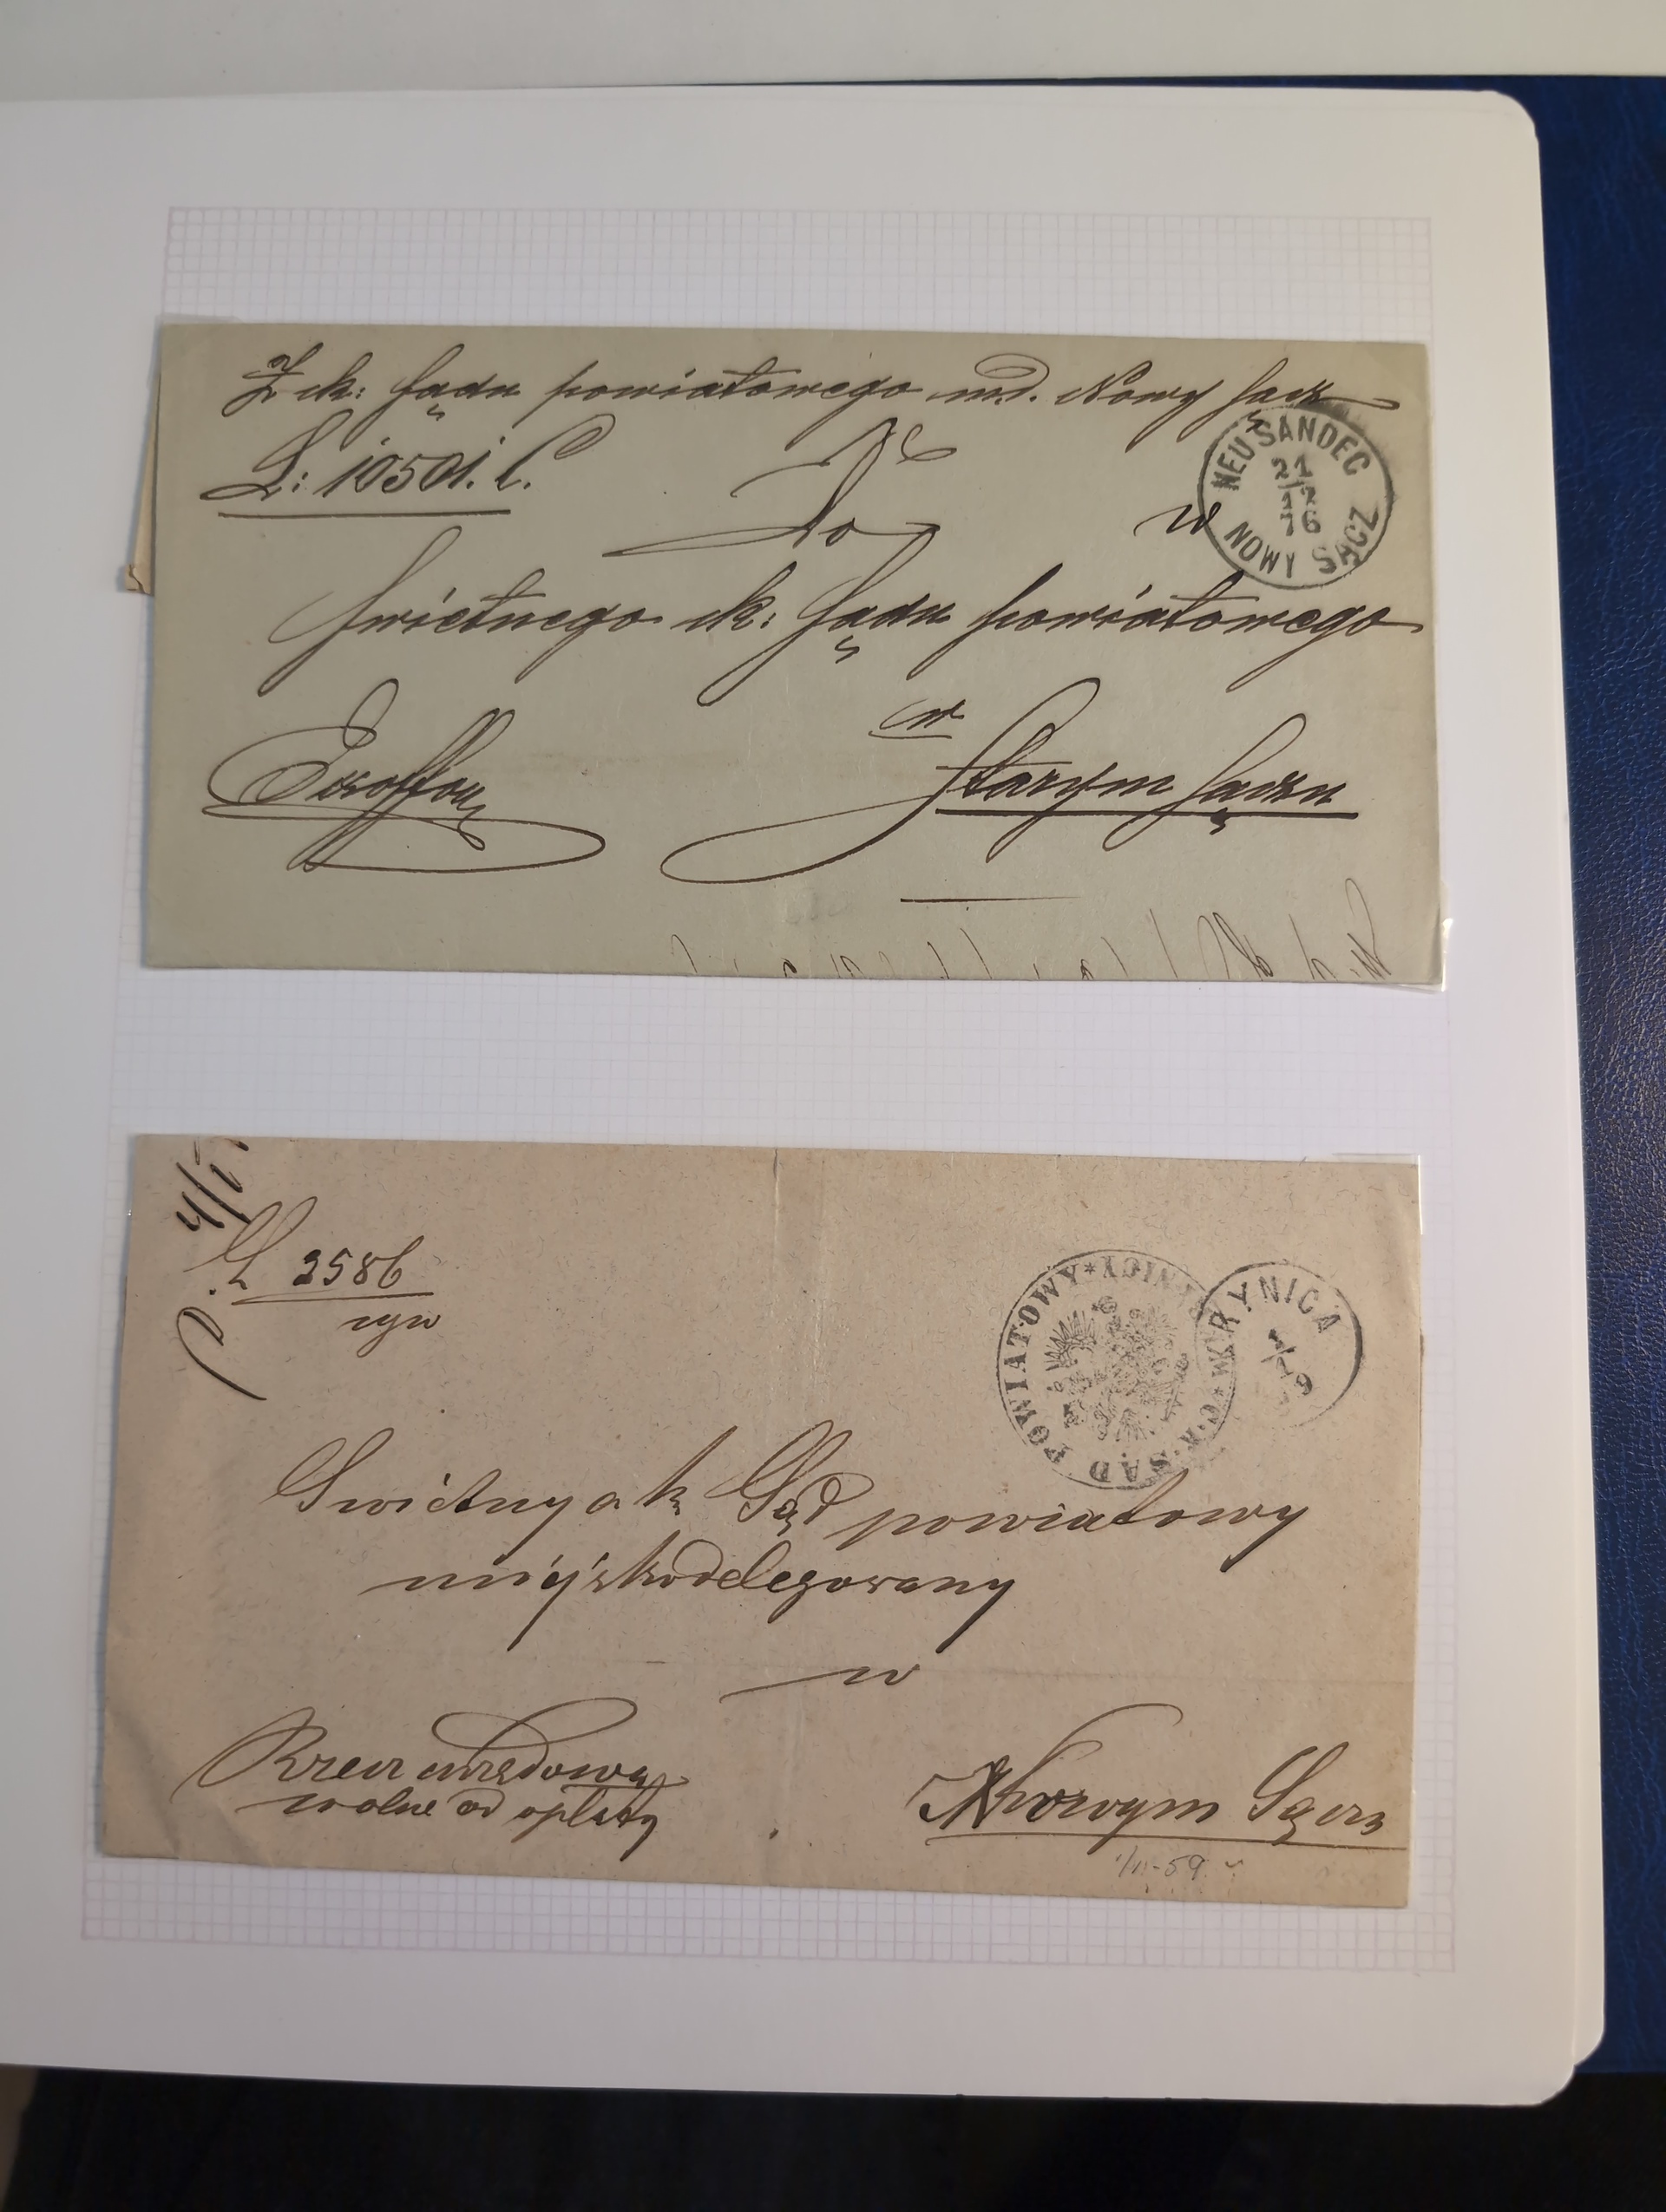 Z ck: Sądu powiatowego m.d. Nowy Sącz
L: 10501. C.
w
NEU SANDEC
21
2
76
NOWY SĄCZ
Do
Świetnego ck: Sądu powiatowego
w
Exoffo
Starym Sączu
L 2586
cyw
C.K. SĄD POWIATOWY * W KRYNICY *
KRYNICA
Swietny c k Sąd powiatowy
miejskodelegowany
w
Rzecz urzędowa
wolne od opłaty
Nowym Sączu